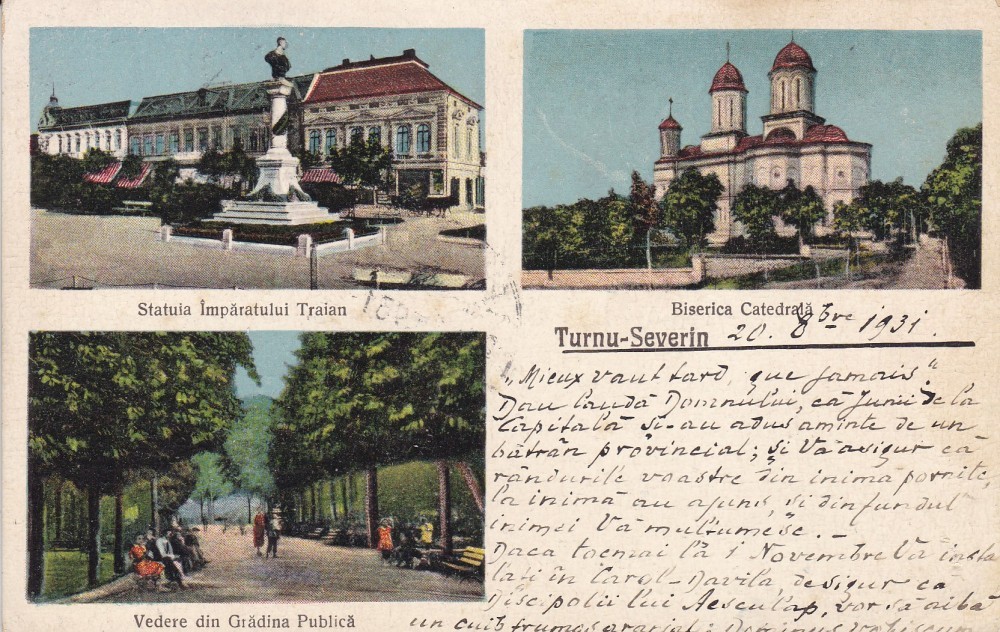 Statuia Împăratului Traian
Biserica Catedrală
Turnu-Severin 20. 8bre 1931.
„Mieux vaut tard, que jamais."
Dau laudă Domnului, că Junii de la
Capitală și-au adus aminte de un
bătrân provincial; și Vă asigur că
rândurile voastre din inima pornite,
la inimă au ajuns, și din fundul
inimei Vă mulțumesc.-
Daca tocmai la 1 Novembre Vă insta
lați în Carol-Davila, desigur ca
Discipolii lui Aesculap, vor să aibă
un cuib frumos
Vedere din Grădina Publică